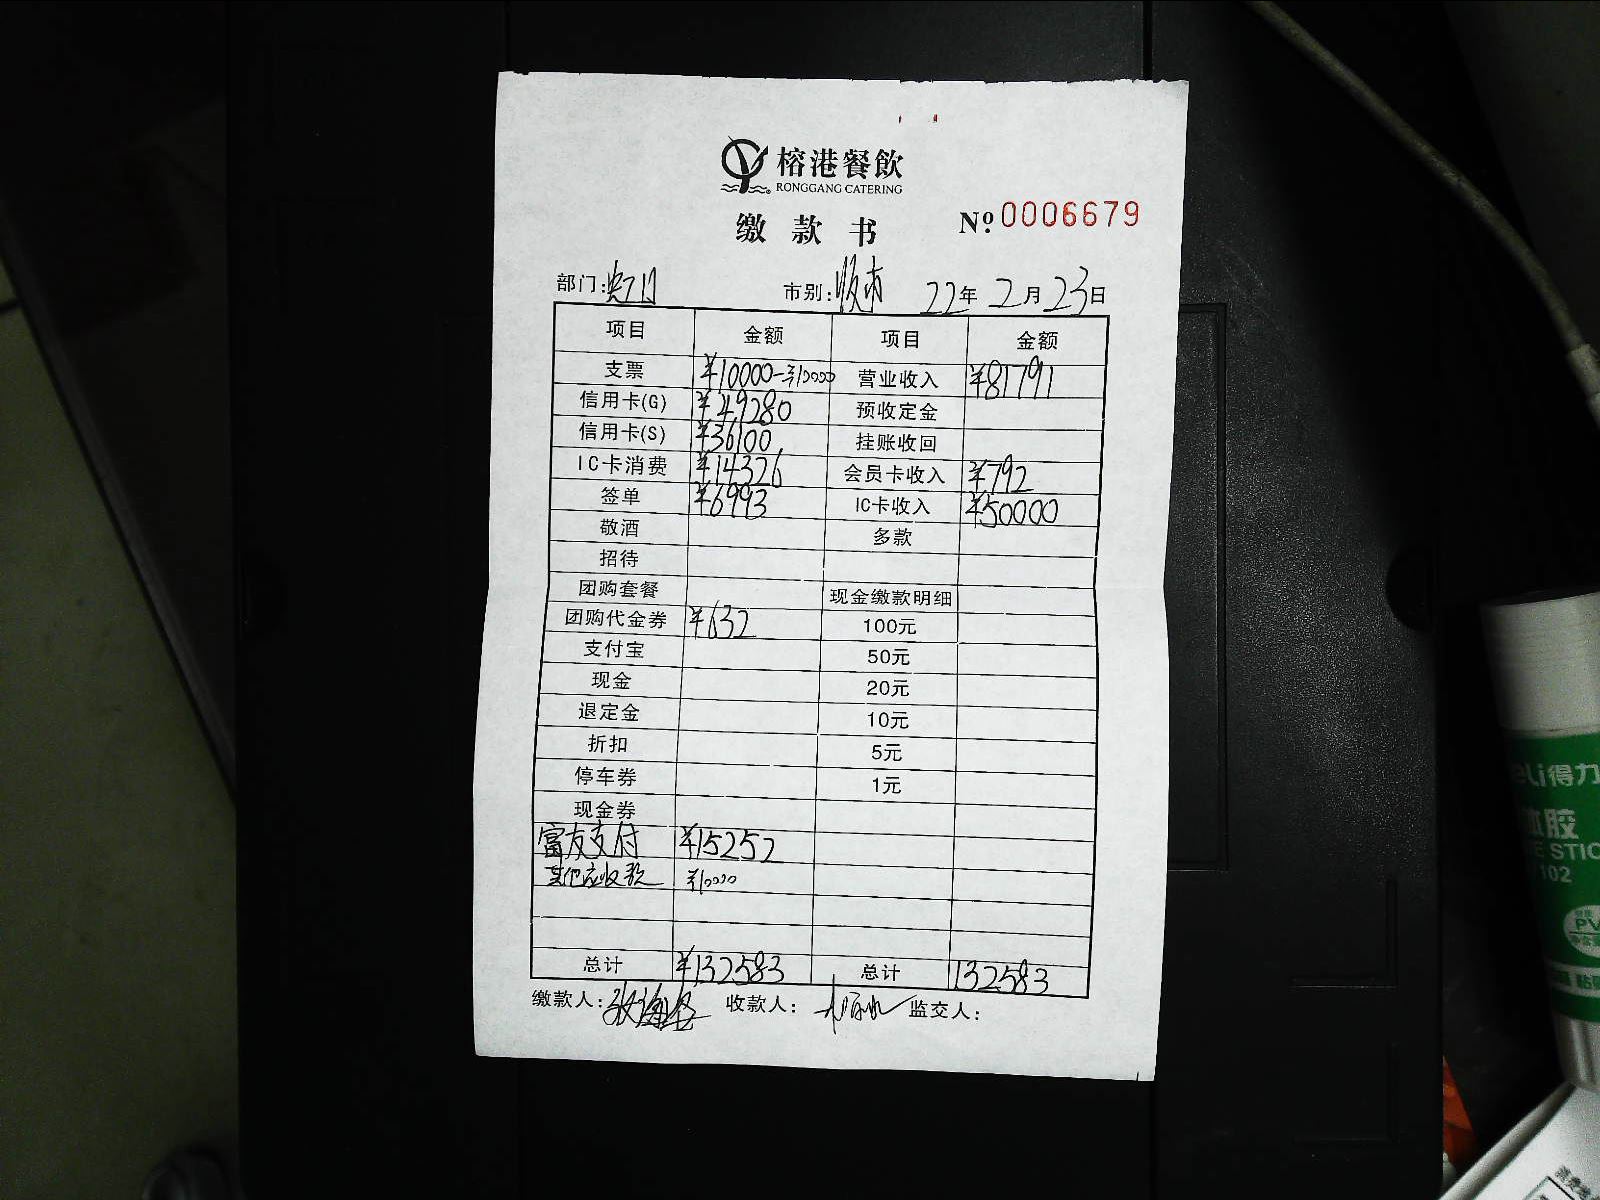 榕港餐飲
RONGGANG CATERING
缴款书
№ 0006679
部门: 市别: 22年 2月 23日
项目 金额 项目 金额
支票 ¥10000-¥10000 营业收入 ¥81791
信用卡(G) ¥49280 预收定金
信用卡(S) ¥36100 挂账收回
IC卡消费 ¥14326 会员卡收入 ¥792
签单 ¥6993 IC卡收入 ¥50000
敬酒 多款
招待
团购套餐 现金缴款明细
团购代金券 ¥632 100元
支付宝 50元
现金 20元
退定金 10元
折扣 5元
停车券 1元
现金券
富友支付 ¥15252
其他应收款 ¥10000
总计 ¥132583 总计 132583
缴款人: 收款人: 监交人:
eli得力
体胶
E STIC
102
PV